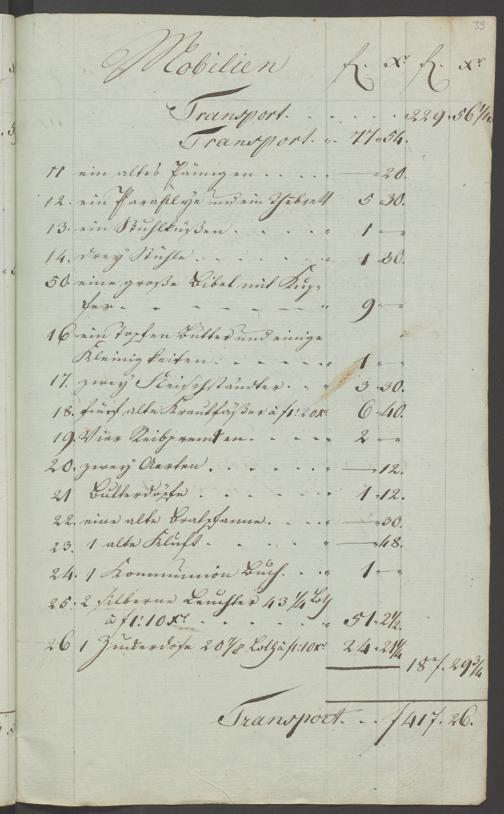 39
Mobilien fl. xr fl. xr
Transport . . . . . 229. 56 1/4
Transport . „ 77 „ 54.
11 ein altes . . . . — 20.
12. ein und ein Theebrett 5 30.
13. ein Stuhlküßen . . . . „ 1 — „
14. drey Stühle . . . . . „ 1 30.
50. eine große Bibel mit Kup=
fer . — — — — — „ 9 — „
16 ein Topfen Butter und einige
Kleinigkeiten . . . . . „ 1 „ — „
17. zwey Fleischständer . . „ 3 30.
18. fünf alte Krautfäßer à f1: 20x. 6 „ 40.
19. Vier . . . . „ 2 — „
20. zwey Aexten . . . . . „ — „ 12.
21 Butterdose . . . . . „ 1 „ 12.
22. eine alte Bratpfanne . . . „ — „ 30.
23. 1 alte Kluft . . . . . „ — „ 48.
24. 1 Kommunion Buch . . „ 1 — „
25. 2 silberne Leuchter 43 1/4 Loth
à f1: 10 xr . . . . . „ 51 „ 2 1/2.
26 1 Zuckerdose 20 7/8 Loth à f1: 10xr. 24 „ 21 1/4
187. 29 3/4
Transport . . . f 417. 26.